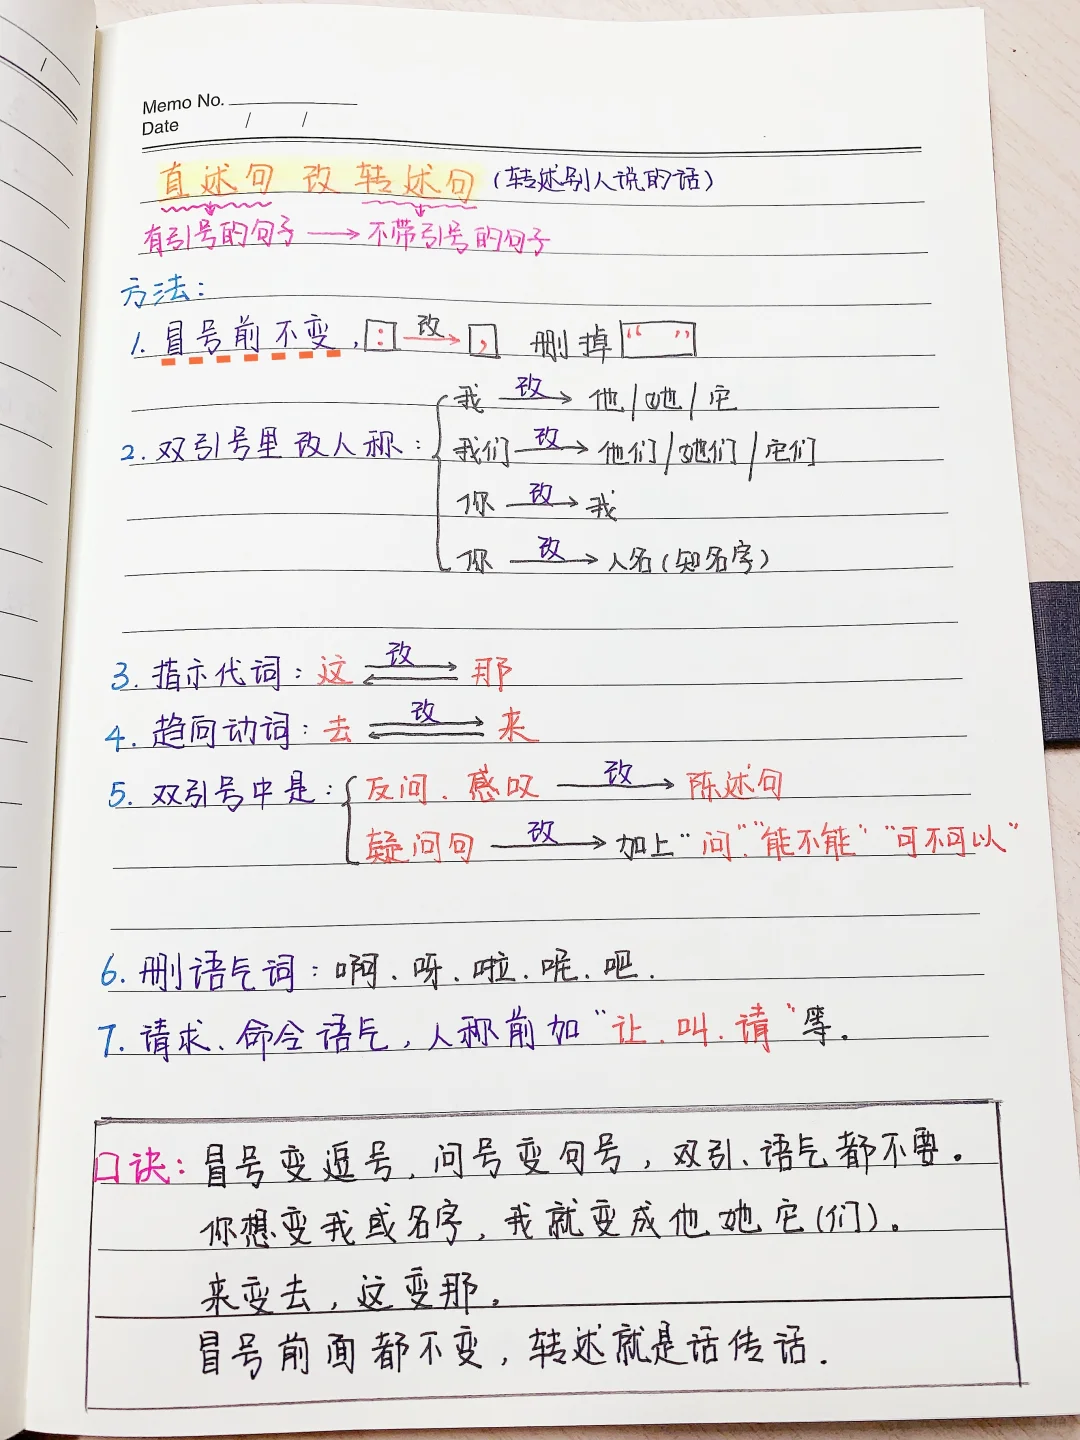 Memo No.
Date / /
直述句 改 转述句 (转述别人说的话)
有引号的句子 → 不带引号的句子
方法:
1. 冒号前不变, : 改→ , 删掉 “ ”
我 改→ 他/她/它
2. 双引号里改人称: 我们 改→ 他们/她们/它们
你 改→ 我
你 改→ 人名(知名字)
3. 指示代词: 这 改⇌ 那
4. 趋向动词: 去 改⇌ 来
5. 双引号中是: 反问、感叹 改→ 陈述句
疑问句 改→ 加上“问”“能不能”“可不可以”
6. 删语气词: 啊、呀、啦、呢、吧.
7. 请求、命令语气, 人称前加“让、叫、请”等。
口诀: 冒号变逗号, 问号变句号, 双引、语气都不要。
你想变我或名字, 我就变成他她它(们)。
来变去, 这变那,
冒号前面都不变, 转述就是话传话.